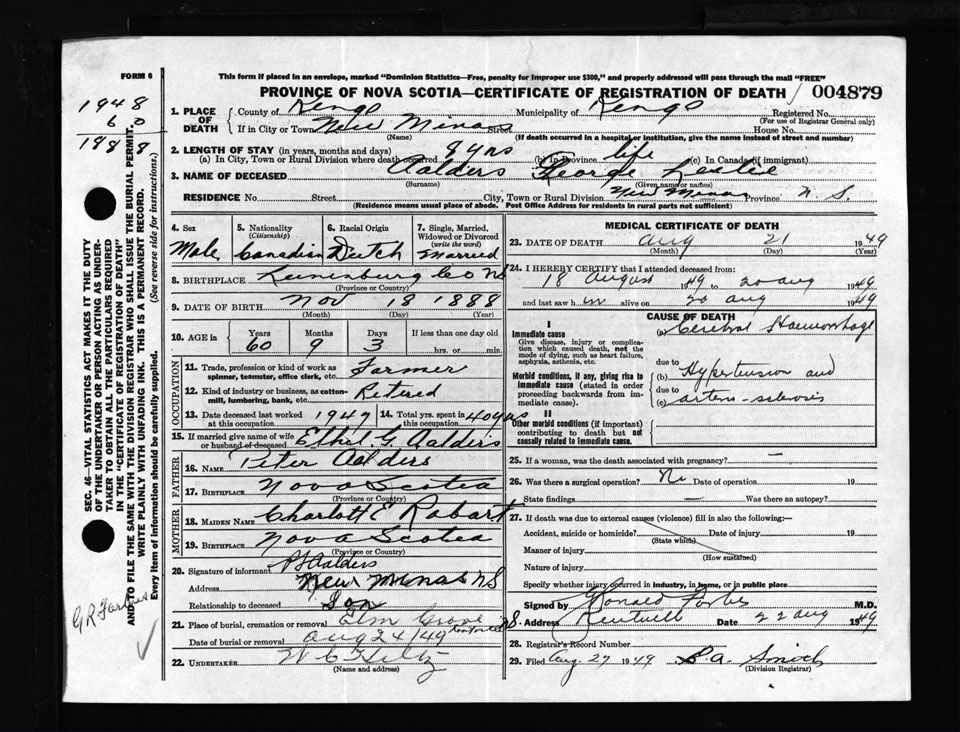 FORM 6
This form if placed in an envelope, marked "Dominion Statistics—Free, penalty for improper use $300," and properly addressed will pass through the mail "FREE"
PROVINCE OF NOVA SCOTIA—CERTIFICATE OF REGISTRATION OF DEATH / 004879
1948
60
1888
1. PLACE OF DEATH County of Kings Municipality of Kings Registered No.
(For use of Registrar General only)
If in City or Town New Minas Street House No.
(Name) (If death occurred in a hospital or institution, give the name instead of street and number)
2. LENGTH OF STAY (in years, months and days)
(a) In City, Town or Rural Division where death occurred 9 yrs (b) In Province life (c) In Canada (if immigrant)
3. NAME OF DECEASED Aalders George Leslie
(Surname) (Given name or names)
RESIDENCE No. Street City, Town or Rural Division New Minas Province N. S.
(Residence means usual place of abode. Post Office Address for residents in rural parts not sufficient)
4. Sex Male
5. Nationality (Citizenship) Canadian
6. Racial Origin Dutch
7. Single, Married, Widowed or Divorced (write the word) Married
8. BIRTHPLACE Lunenburg Co NS
(Province or Country)
9. DATE OF BIRTH Nov 18 1888
(Month) (Day) (Year)
10. AGE in Years 60 Months 9 Days 3 If less than one day old hrs. or min.
OCCUPATION
11. Trade, profession or kind of work as spinner, teamster, office clerk, etc. Farmer
12. Kind of industry or business, as cotton-mill, lumbering, bank, etc. Retired
13. Date deceased last worked at this occupation 1947 14. Total yrs. spent in this occupation 40 yrs
15. If married give name of wife or husband of deceased Ethel G. Aalders
FATHER
16. NAME Peter Aalders
17. BIRTHPLACE Nova Scotia
(Province or Country)
MOTHER
18. MAIDEN NAME Charlott E Robart
19. BIRTHPLACE Nova Scotia
(Province or Country)
20. Signature of informant Aalders
Address New Minas NS
Relationship to deceased Son
21. Place of burial, cremation or removal Elm Grove
Date of burial or removal Aug 24/49
22. UNDERTAKER W C Hiltz
(Name and address)
MEDICAL CERTIFICATE OF DEATH
23. DATE OF DEATH Aug 21 1949
(Month) (Day)
24. I HEREBY CERTIFY that I attended deceased from:
18 August 1949 to 20 aug 1949
and last saw him alive on 20 aug 1949
CAUSE OF DEATH
I
Immediate cause
Give disease, injury or complication which caused death, not the mode of dying, such as heart failure, asphyxia, asthenia, etc.
(a) Cerebral Haemorrhage
due to
Morbid conditions, if any, giving rise to immediate cause (stated in order proceeding backwards from immediate cause).
(b) Hypertension and
due to
(c) arterio-sclerosis
II
Other morbid conditions (if important) contributing to death but not causally related to immediate cause.
25. If a woman, was the death associated with pregnancy? —
26. Was there a surgical operation? No Date of operation 19
State findings — Was there an autopsy?
27. If death was due to external causes (violence) fill in also the following:—
Accident, suicide or homicide? Date 19
(State which)
Manner of injury
(How sustained)
Nature of injury
Specify whether injury occurred in industry, in home, or in public place
Signed by Ronald Forbes M.D.
Address Kentville Date 22 aug 1949
28. Registrar's Record Number
29. Filed Aug. 27 1949 Smith
(Division Registrar)
SEC. 46—VITAL STATISTICS ACT MAKES IT THE DUTY
OF THE UNDERTAKER OR PERSON ACTING AS UNDER-
TAKER TO OBTAIN ALL THE PARTICULARS REQUIRED
IN THE "CERTIFICATE OF REGISTRATION OF DEATH"
AND TO FILE THE SAME WITH THE DIVISION REGISTRAR WHO SHALL ISSUE THE BURIAL PERMIT.
WRITE PLAINLY WITH UNFADING INK. THIS IS A PERMANENT RECORD.
Every item of information should be carefully supplied. (See reverse side for instructions.)